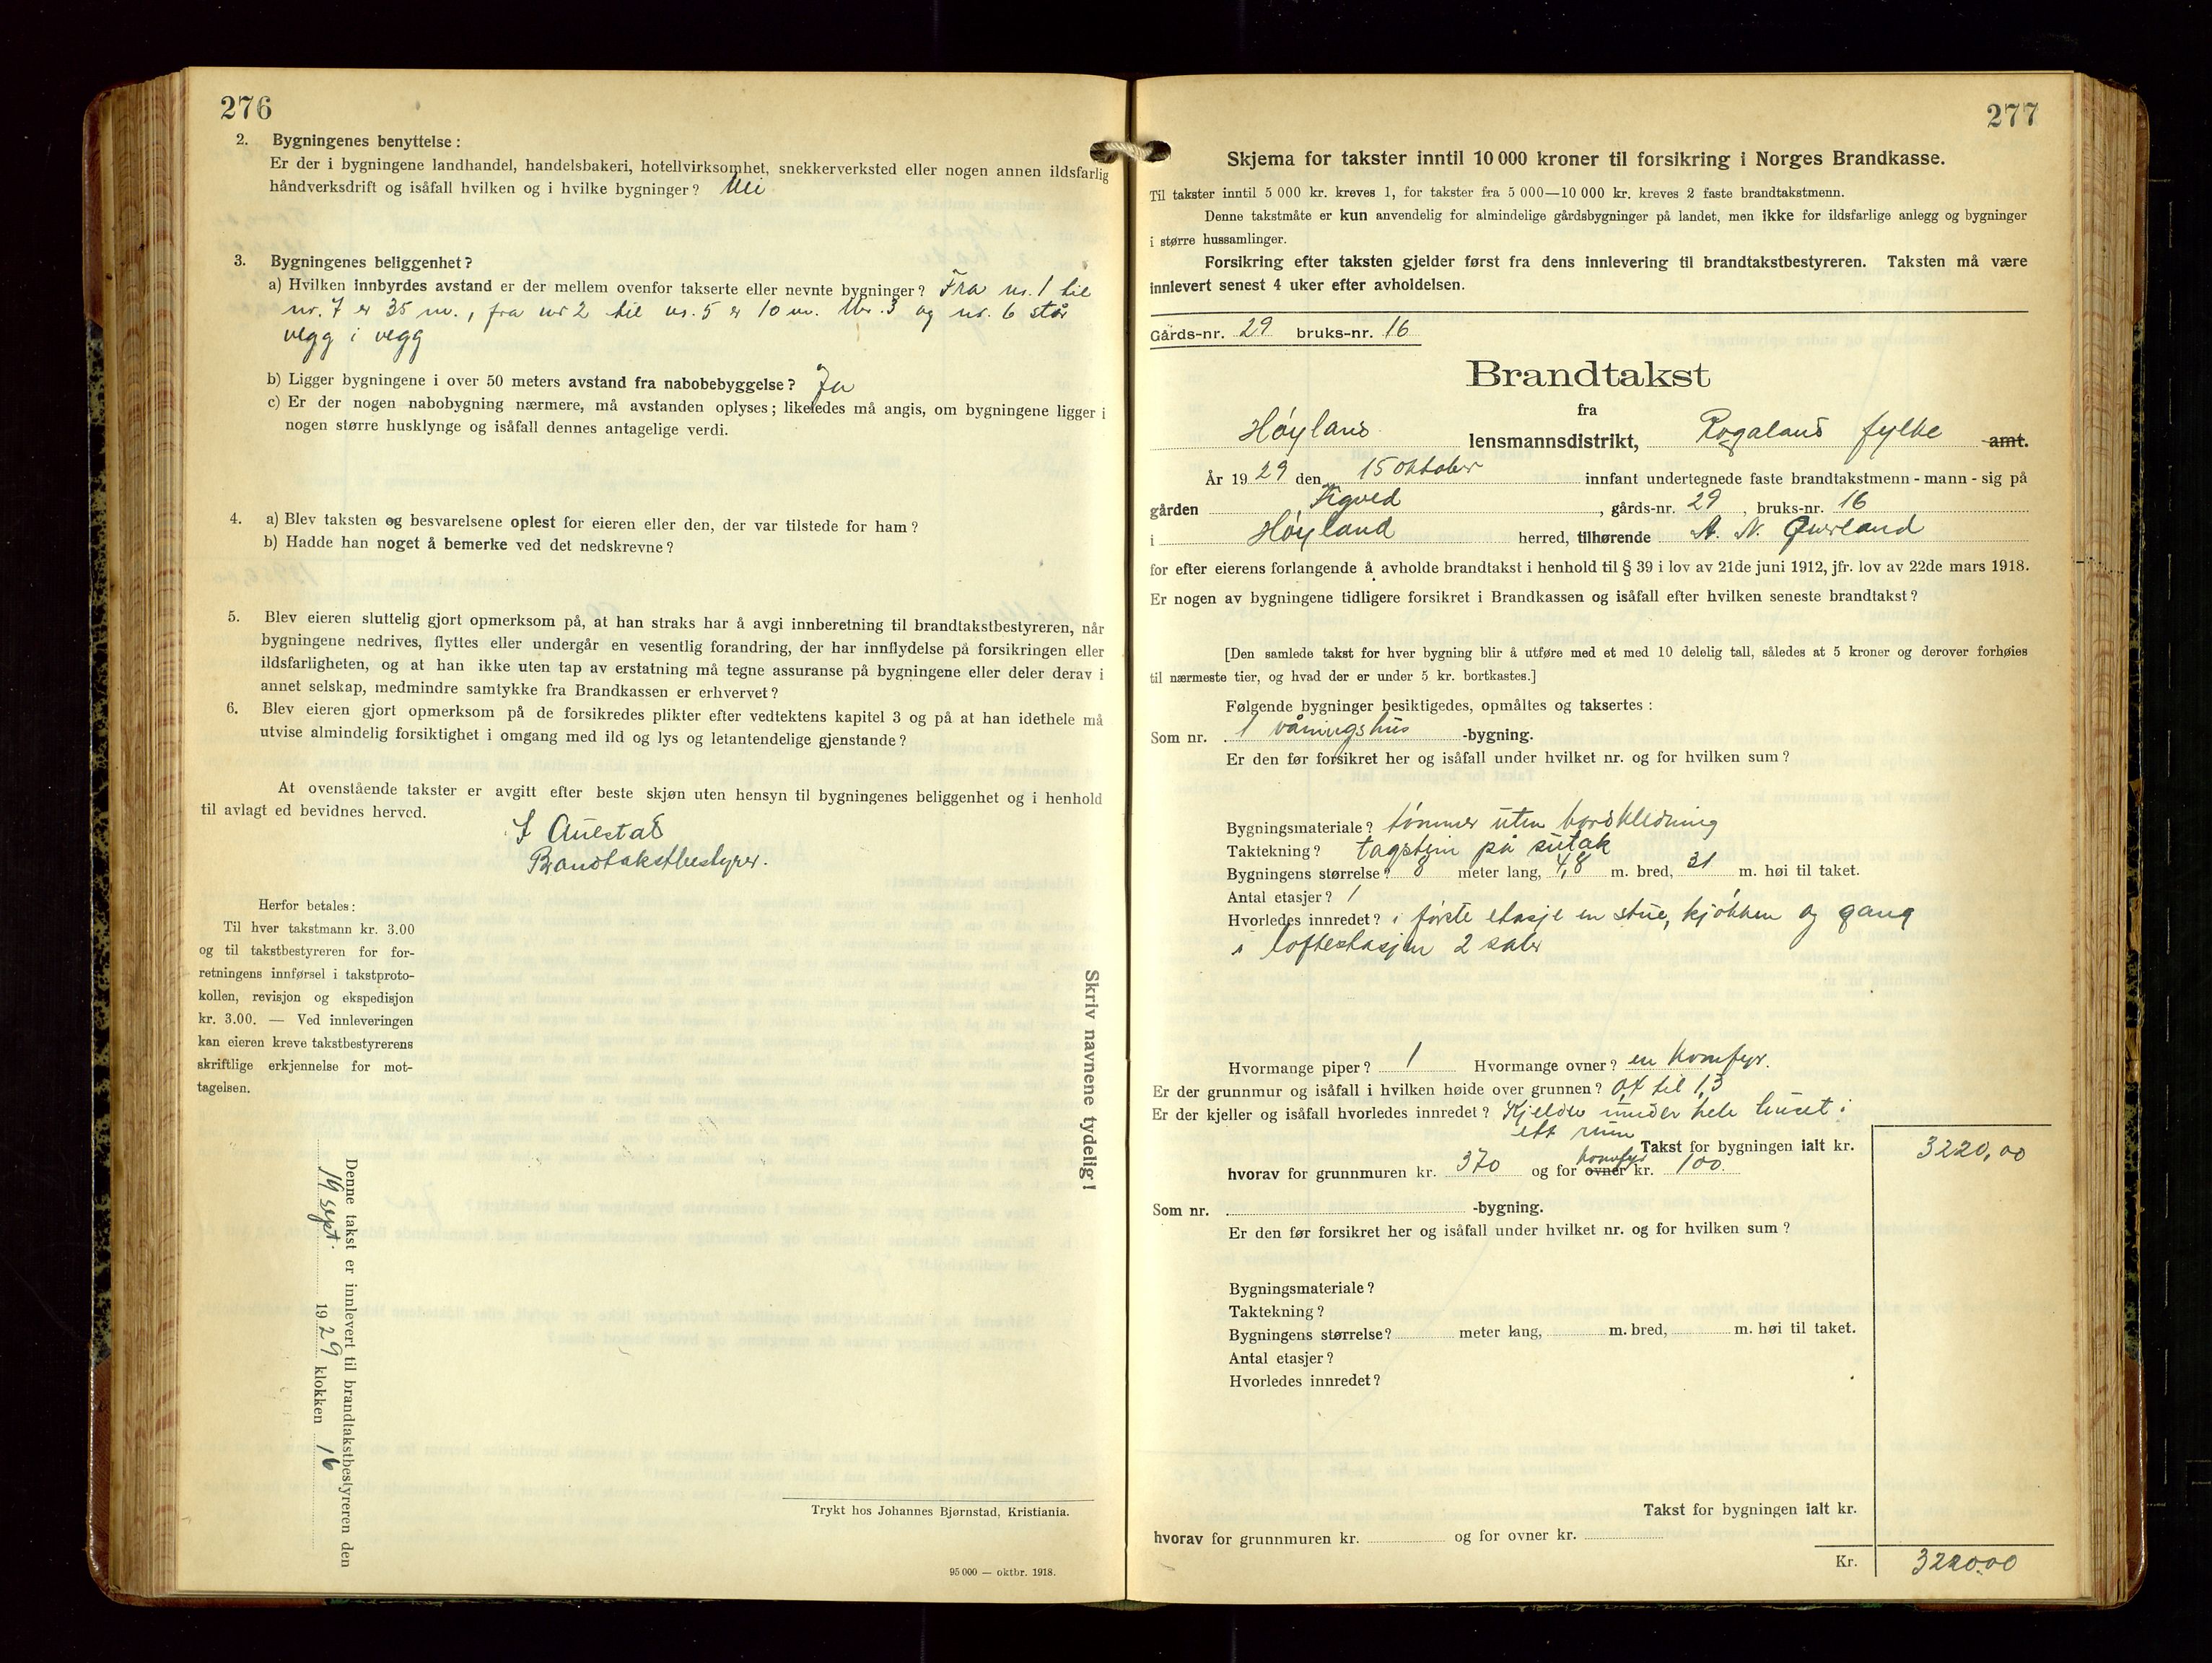 276
2. Bygningenes benyttelse :
Er der i bygningene landhandel, handelsbakeri, hotellvirksomhet, snekkerverksted eller nogen annen ildsfarlig
håndverksdrift og isåfall hvilken og i hvilke bygninger? Nei
3. Bygningenes beliggenhet?
a) Hvilken innbyrdes avstand er der mellem ovenfor takserte eller nevnte bygninger? Fra nr. 1 til
nr. 7 er 35 m., fra nr 2 til nr. 5 er 10 m. Nr. 3 og nr. 6 står
vegg i vegg
b) Ligger bygningene i over 50 meters avstand fra nabobebyggelse? Ja
c) Er der nogen nabobygning nærmere, må avstanden oplyses; likeledes må angis, om bygningene ligger i
nogen større husklynge og isåfall dennes antagelige verdi.
4. a) Blev taksten og besvarelsene oplest for eieren eller den, der var tilstede for ham?
b) Hadde han noget å bemerke ved det nedskrevne?
5. Blev eieren sluttelig gjort opmerksom på, at han straks har å avgi innberetning til brandtakstbestyreren, når
bygningene nedrives, flyttes eller undergår en vesentlig forandring, der har innflydelse på forsikringen eller
ildsfarligheten, og at han ikke uten tap av erstatning må tegne assuranse på bygningene eller deler derav i
annet selskap, medmindre samtykke fra Brandkassen er erhvervet?
6. Blev eieren gjort opmerksom på de forsikredes plikter efter vedtektens kapitel 3 og på at han idethele må
utvise almindelig forsiktighet i omgang med ild og lys og letantendelige gjenstande?
At ovenstående takster er avgitt efter beste skjøn uten hensyn til bygningenes beliggenhet og i henhold
til avlagt ed bevidnes herved.
Auestad
Brandtakstbestyrer.
Herfor betales:
Til hver takstmann kr. 3.00
og til takstbestyreren for for-
retningens innførsel i takstproto-
kollen, revisjon og ekspedisjon
kr. 3.00. — Ved innleveringen
kan eieren kreve takstbestyrerens
skriftlige erkjennelse for mot-
tagelsen.
Skriv navnene tydelig!
Denne takst er innlevert til brandtakstbestyreren den
19 sept. 1929 klokken 16
Trykt hos Johannes Bjørnstad, Kristiania.
95 000 — oktbr. 1918.
277
Skjema for takster inntil 10 000 kroner til forsikring i Norges Brandkasse.
Til takster inntil 5 000 kr. kreves 1, for takster fra 5 000—10 000 kr. kreves 2 faste brandtakstmenn.
Denne takstmåte er kun anvendelig for almindelige gårdsbygninger på landet, men ikke for ildsfarlige anlegg og bygninger
i større hussamlinger.
Forsikring efter taksten gjelder først fra dens innlevering til brandtakstbestyreren. Taksten må være
innlevert senest 4 uker efter avholdelsen.
Gårds-nr. 29 bruks-nr. 16
Brandtakst
fra
Høyland lensmannsdistrikt, Rogaland fylke amt.
År 1929 den 15 oktober innfant undertegnede faste brandtakstmenn - mann - sig på
gården , gårds-nr. 29, bruks-nr. 16
i Høyland herred, tilhørende A. N. Overland
for efter eierens forlangende å avholde brandtakst i henhold til § 39 i lov av 21de juni 1912, jfr. lov av 22de mars 1918.
Er nogen av bygningene tidligere forsikret i Brandkassen og isåfall efter hvilken seneste brandtakst?
[Den samlede takst for hver bygning blir å utføre med et med 10 delelig tall, således at 5 kroner og derover forhøies
til nærmeste tier, og hvad der er under 5 kr. bortkastes.]
Følgende bygninger besiktigedes, opmåltes og taksertes :
Som nr. 1 våningshus -bygning.
Er den før forsikret her og isåfall under hvilket nr. og for hvilken sum?
Bygningsmateriale? tømmer uten bordkledning
Taktekning? tagstein på sutak
Bygningens størrelse? 8 meter lang, 4,8 m. bred, 31 m. høi til taket.
Antal etasjer? 1
Hvorledes innredet? i første etasje en stue, kjøkken og gang
i loftestasjen 2 saler
Hvormange piper? 1 Hvormange ovner? en komfyr.
Er der grunnmur og isåfall i hvilken høide over grunnen? til 1,3
Er der kjeller og isåfall hvorledes innredet? Kjelder under hele huset i
ett rum
Takst for bygningen ialt kr. 3220,00
hvorav for grunnmuren kr. 370 og for ovner komfyr kr. 100
Som nr. -bygning.
Er den før forsikret her og isåfall under hvilket nr. og for hvilken sum?
Bygningsmateriale?
Taktekning?
Bygningens størrelse? meter lang, m. bred, m. høi til taket.
Antal etasjer?
Hvorledes innredet?
Takst for bygningen ialt kr.
hvorav for grunnmuren kr. og for ovner kr.
Kr. 3220.00